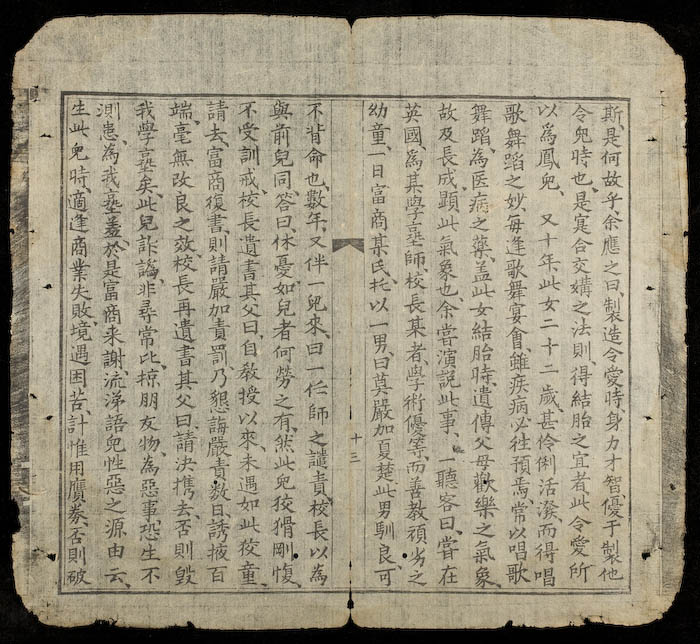 斯、是何故乎、余應之曰、製造令愛時、身力才智、優于製他
令兒時也、是寔合交媾之法則、得結胎之宜者、此令愛所
以為鳳兒、又十年、此女二十二歲、甚伶俐活潑而得唱
歌舞蹈之妙、每逢歌舞宴會、雖疾病必往預焉、常以唱歌
舞蹈、為医病之藥、盖此女結胎時、遺傳父母歡樂之氣象、
故及長成、顯此氣象也、余嘗演説此事、一聽客曰、嘗在
英國、為某學塾師、校長某者、學術優等、而善教頑劣之
幼童、一日富商某氏、托以一男、曰莫嚴加夏楚、此男馴良、可
十三
不背命也、數年、又伴一兒來、曰一任師之譴責、校長以為
與前兒同、答曰、休憂、如兒者何勞之有、然此兒狡猾剛愎
不受訓戒、校長遺書其父曰、自教授以來、未遇如此狡童、
請去、富商復書、則請嚴加責罰、乃懇誨嚴責數日、誘掖百
端、毫無改良之效、校長再遺書其父曰、請決携去、否則毀
我學塾矣、此兒詐譌、非尋常比、掠朋友物、為惡事、恐生不
測患、為我塾羞、於是富商来謝、流涕語兒性惡之源由云、
生此兒時、適逢商業失敗、境遇困苦、計惟用贋券、否則破